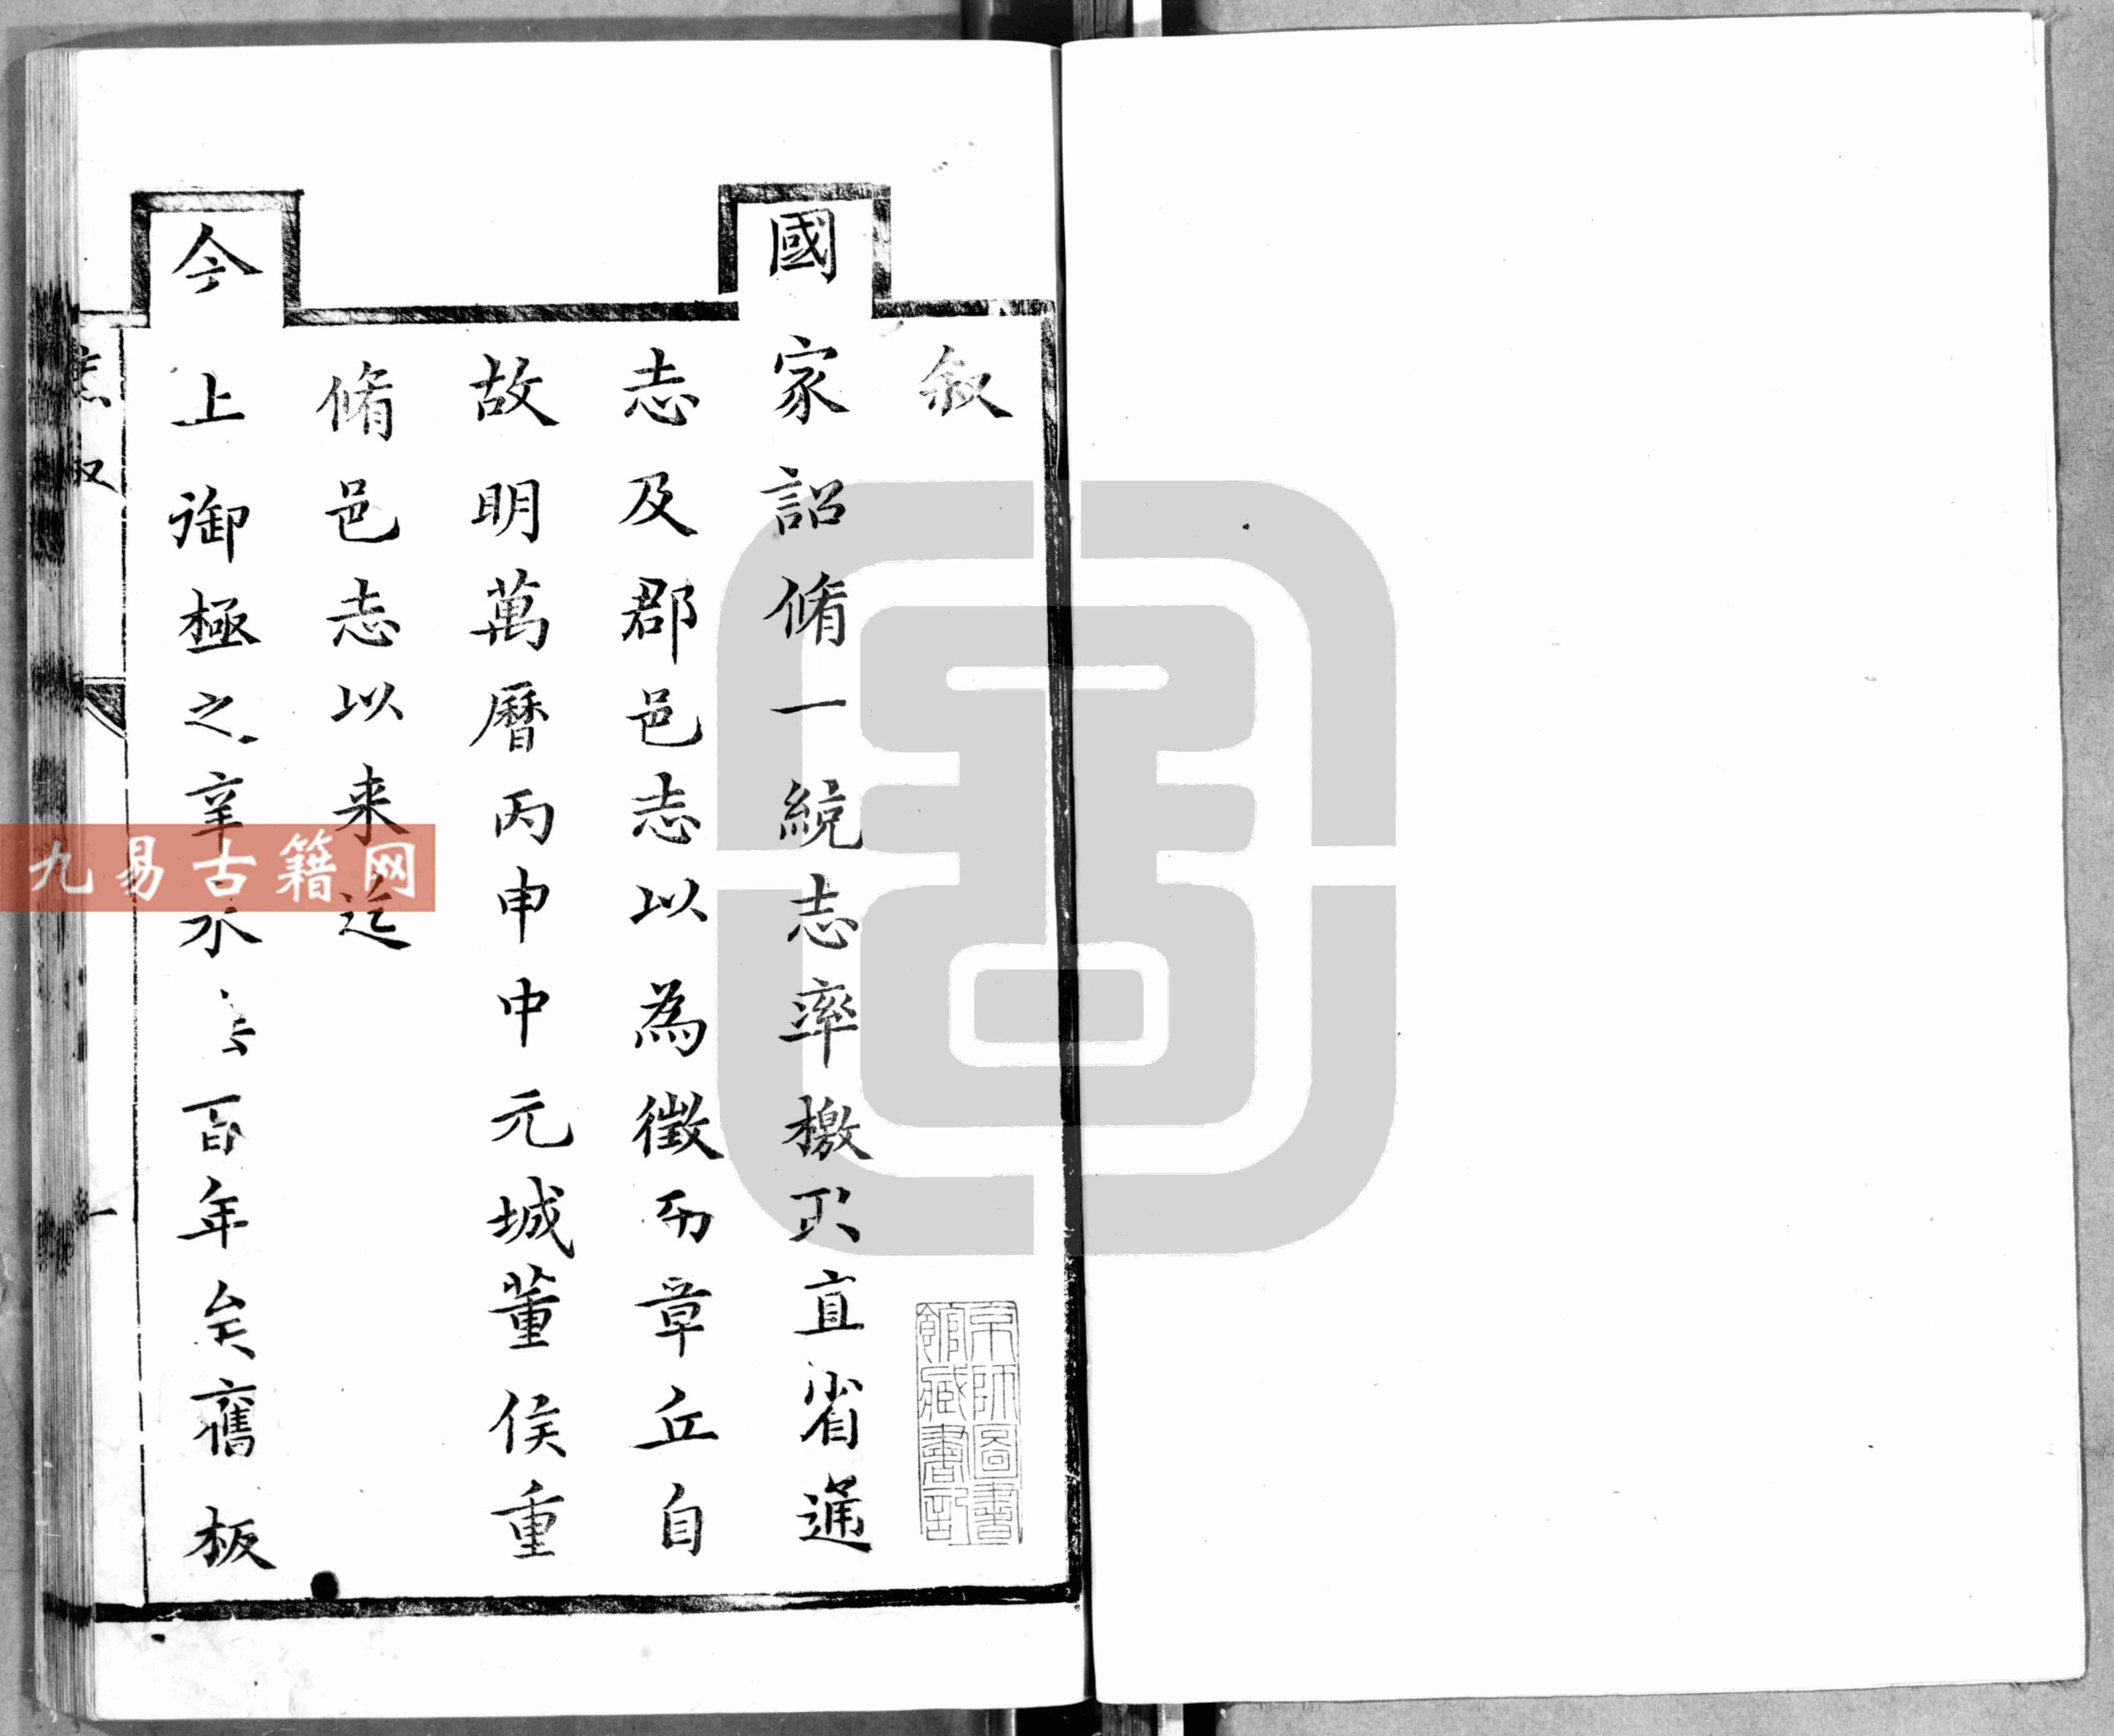 叙
國家詔脩一統志率檄取直省通
志及郡邑志以為徵而章丘自
故明萬曆丙申中元城董侯重
脩邑志以来迄
今上御極之辛未百年矣舊板
叙
一
京師圖書
館藏書記
九易古籍网